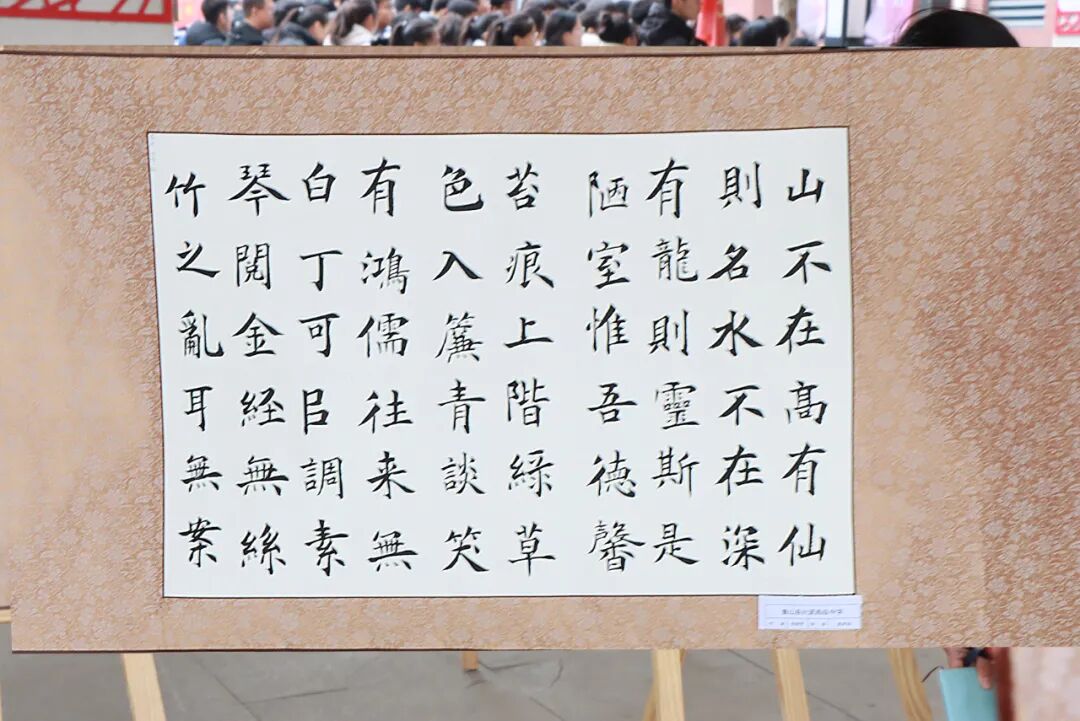 山不在髙有仙
則名水不在深
有龍則靈斯是
陋室惟吾德馨
苔痕上階綠草
色入簾青談笑
有鴻儒往来無
白丁可㠯調素
琴閱金経無絲
竹之亂耳無案